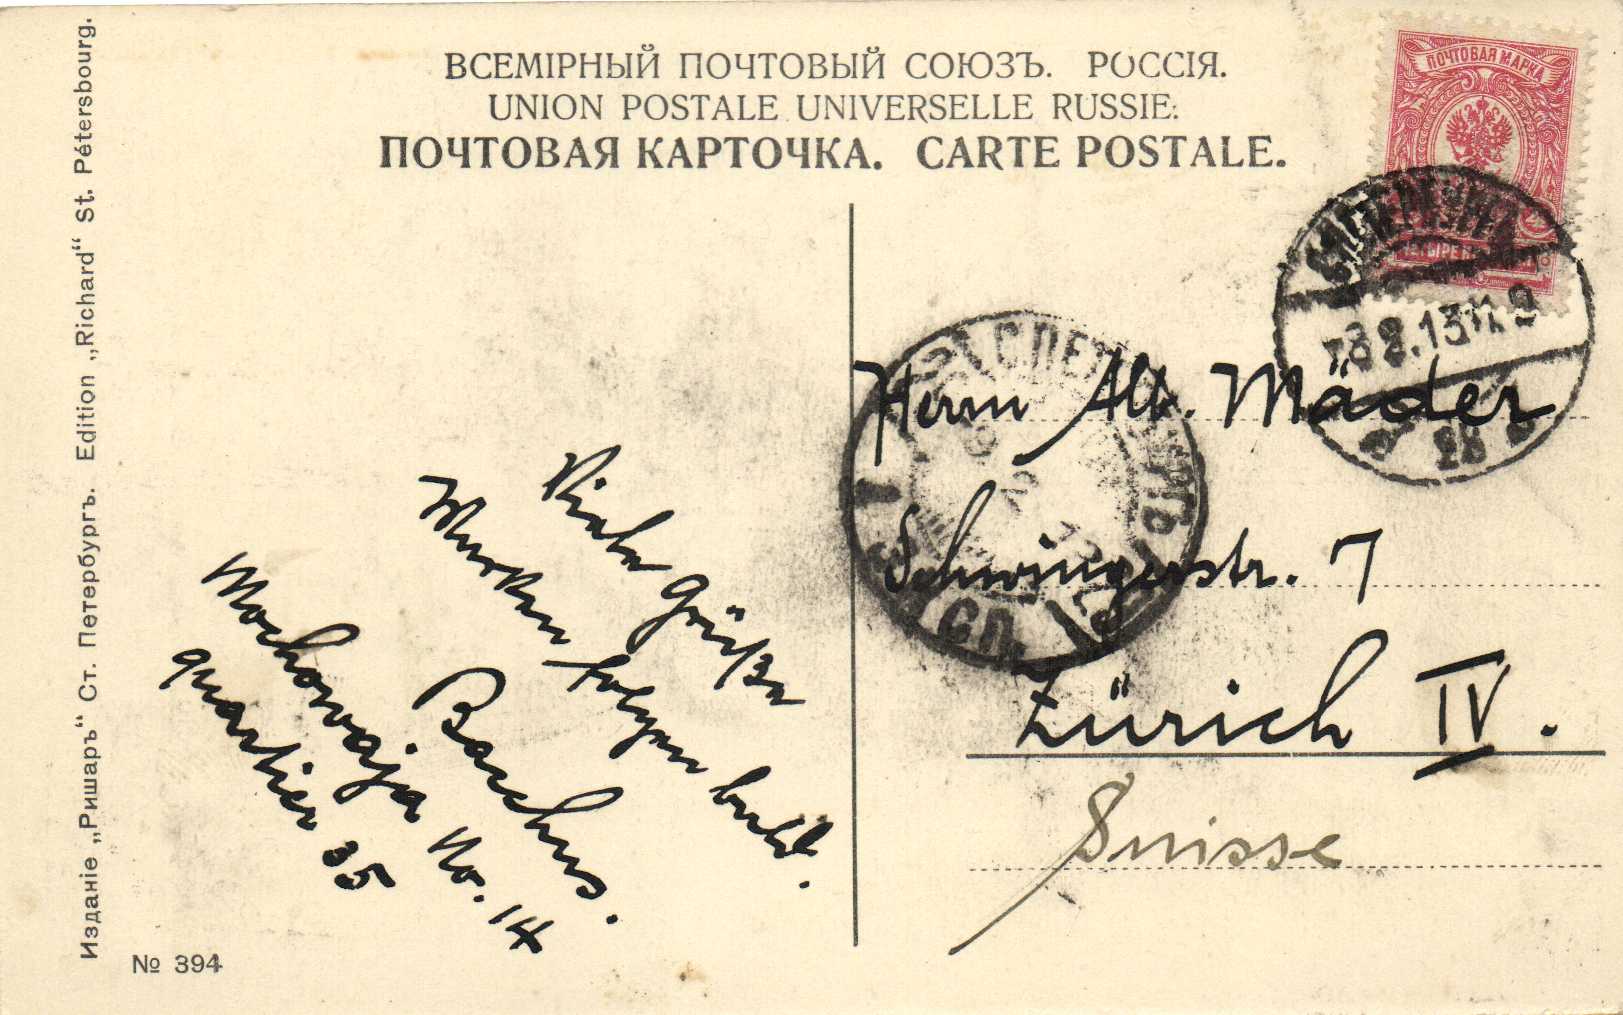 ВСЕМІРНЫЙ ПОЧТОВЫЙ СОЮЗЪ. РОССІЯ.
UNION POSTALE UNIVERSELLE RUSSIE:
ПОЧТОВАЯ КАРТОЧКА. CARTE POSTALE.
Изданіе „Ришаръ“ Ст. Петербургъ. Edition „Richard“ St. Pétersbourg.
№ 394
ПОЧТОВАЯ МАРКА
28
1 С.ПЕТЕРБУРГЪ
Herrn Alb. Mäder
Schwingerstr. 7
Zürich IV.
Suisse
Viele Grüsse
Marken folgen bald.
Bachus.
Mochowaja No. 14
quartier 35